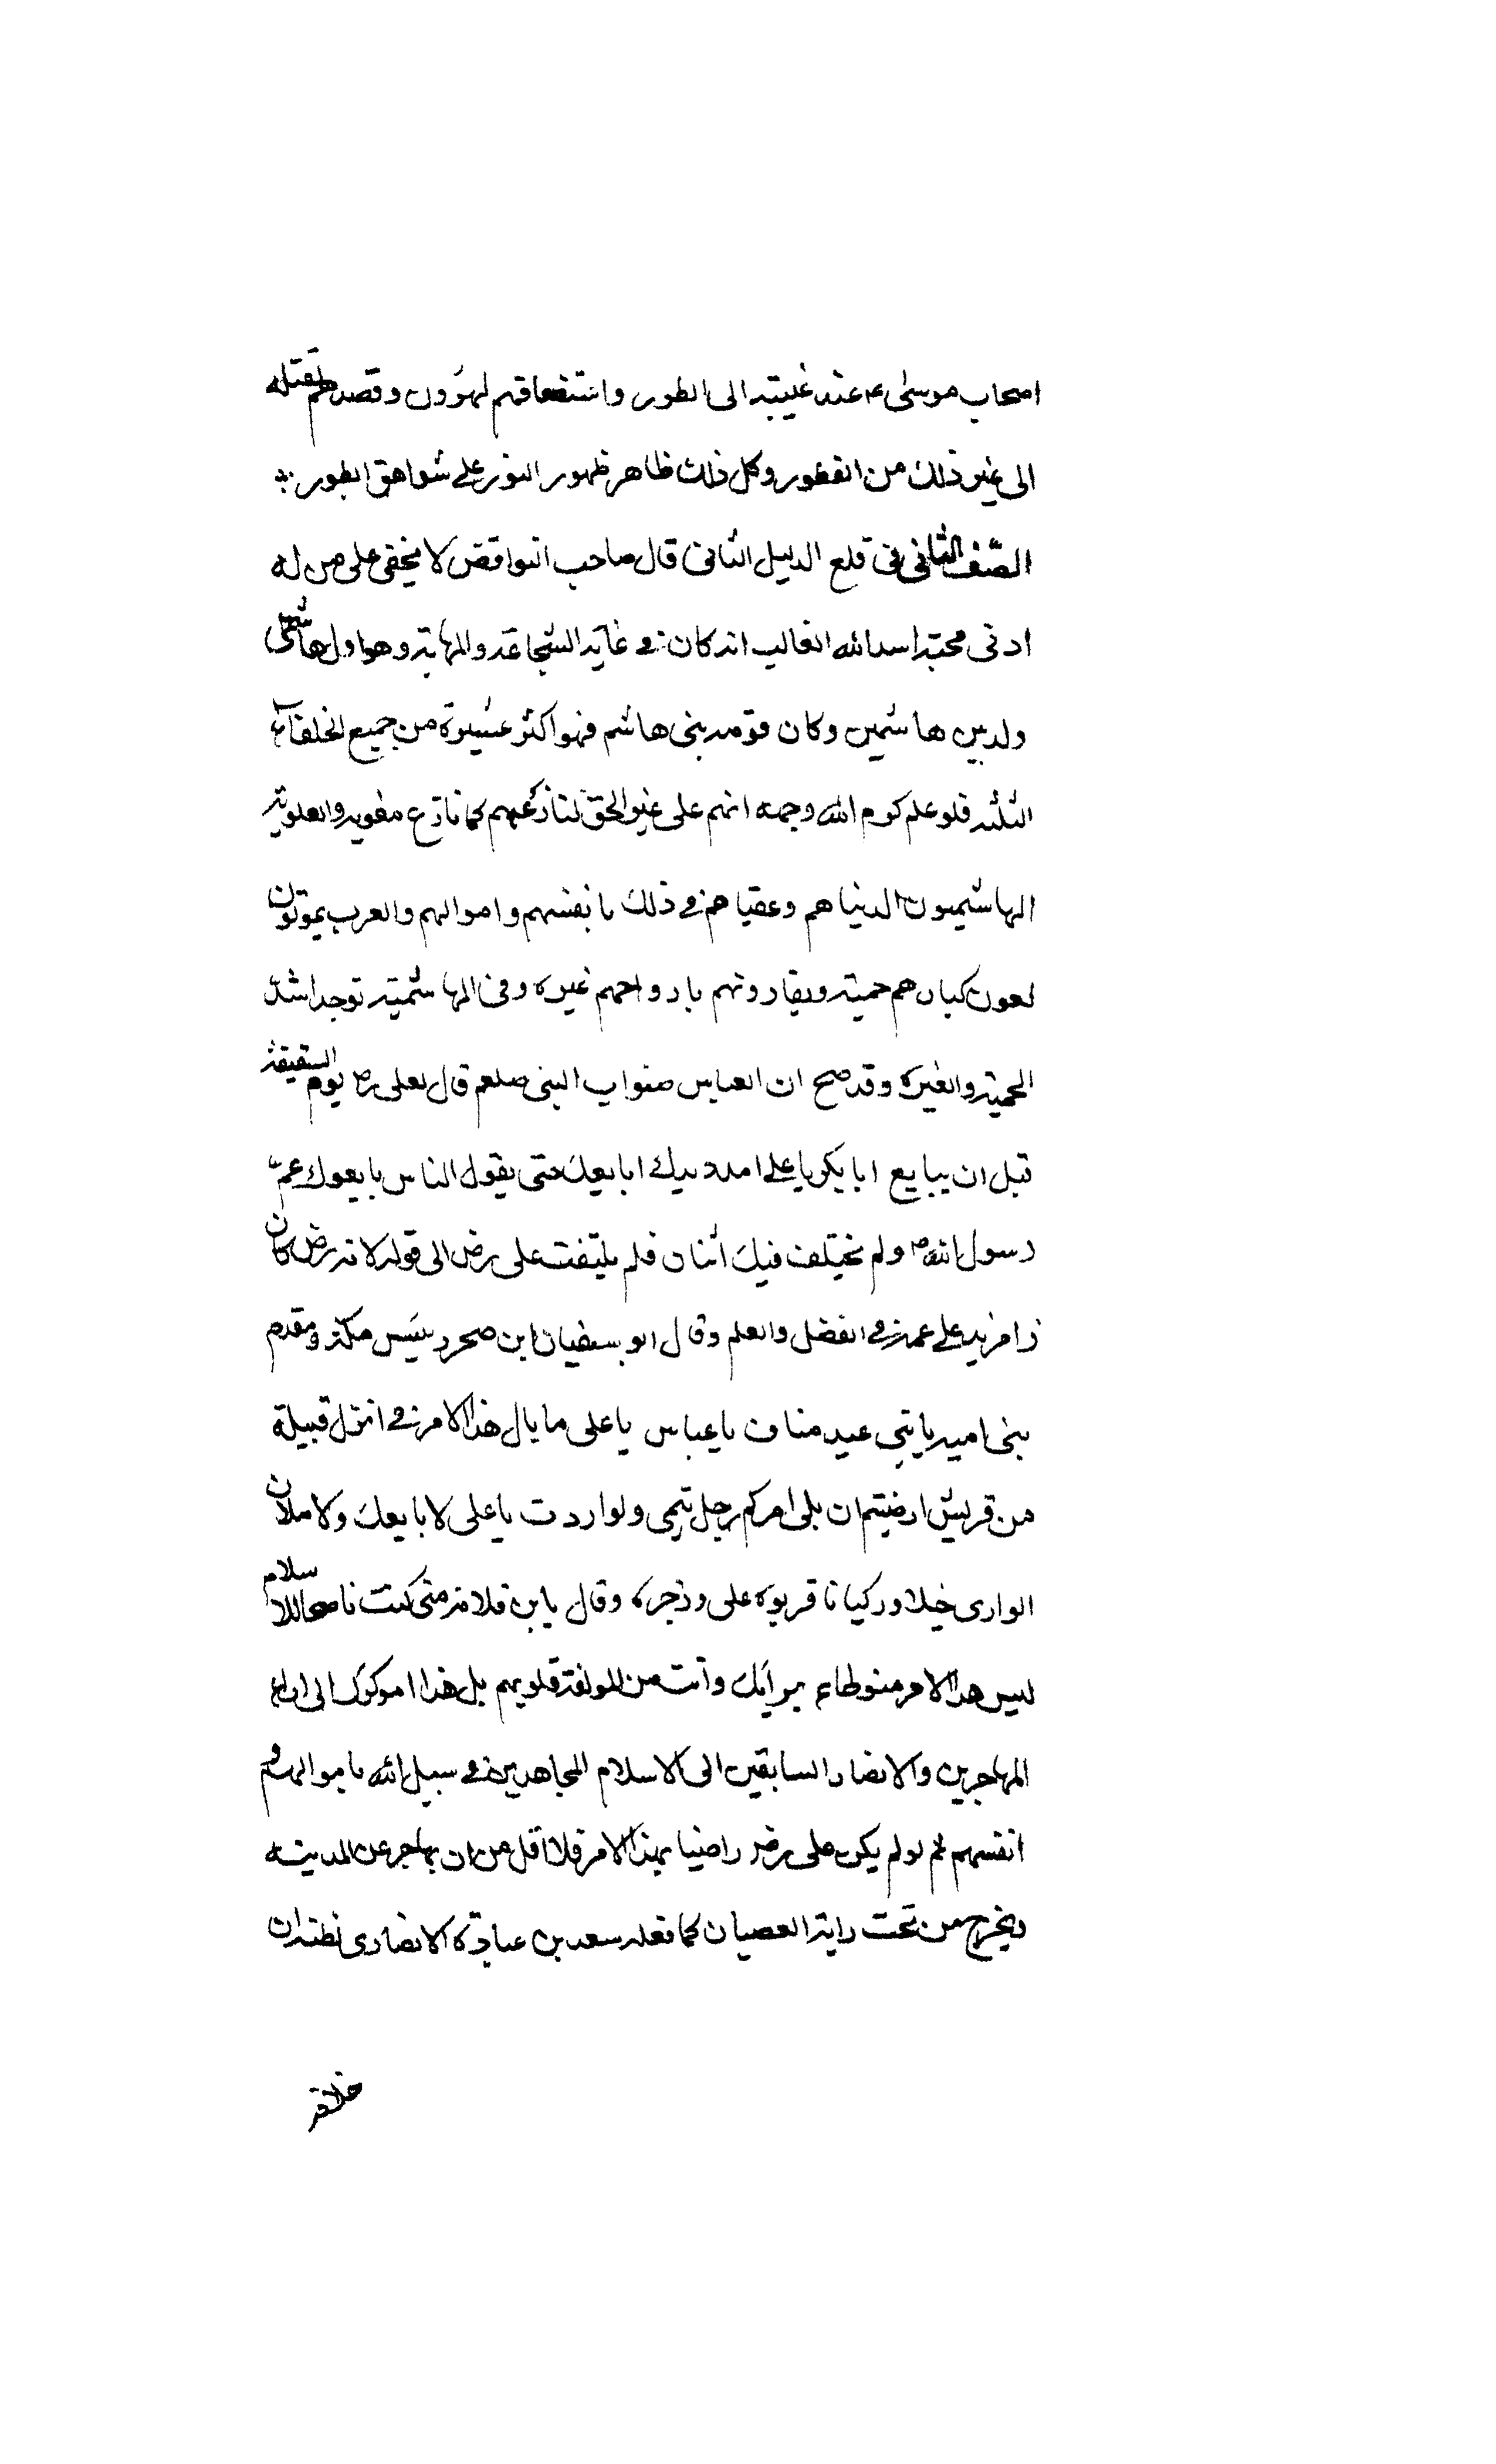 اصحاب موسى ع عند غيبته الى الطور واستضعافهم لهرون وقصدهم لقتله
الى غير ذلك من الفطور وكل ذلك ظاهر ظهور النور على شواهق الطور
الصنف الثانى فى قلع الدليل الثانى قال صاحب النواقض لا يخفى على من له
ادنى محبة اسد الله الغالب انه كان فى غاية الشجاعة والمهابة وهو اول هاشمى
ولد بين هاشمين وكان قومه بنى هاشم فهو اكثر عشيرة من جميع الخلفاء
الثلثة فلو علم كرم الله وجهه انهم على غير الحق لنازعهم كما نازع معوية والعلوية
الهاشميون لدنياهم وعقباهم فى ذلك بانفسهم واموالهم والعرب يموتون
لعون كبارهم حمية ويفادونهم بارواحهم غيرة وفى الهاشمية توجد اشد
الحمية والغيرة وقد صح ان العباس صنو اب النبى صلعم قال لعلى رض يوم السقيفة
قبل ان يبايع ابا بكر يا على امدد يدك ابايعك حتى يقول الناس بايعوك عم
رسول الله ص ولم يختلف فيك اثنان فلم يلتفت على رض الى قوله لانه رض كان
ذا مزيد على عمه فى الفضل والعلم وقال ابو سفيان ابن صخر رئيس مكة ومقدم
بنى امية يا بنى عبد مناف يا عباس يا على ما بال هذا الامر فى انزل قبيلة
من قريش ارضيتم ان يلى امركم رجل تيمى ولو اردت يا على لابايعك ولاملان
الوادى خيلا وركبانا قربوه على وزجره وقال يا بن فلانة متى كنت ناصحا للاسلام
ليس هذا الامر منوطا برايك وانت من المولفة قلوبهم بل هذا موكول الى اراء
المهاجرين والانصار السابقين الى الاسلام المجاهدين فى سبيل الله باموالهم و
انفسهم ثم لو لم يكن على رض راضيا بهذا الامر فلا اقل من ان يهاجر عن المدينة
ويخرج من تحت راية العصيان كما فعله سعد بن عبادة الانصارى لظنه ان
خلافة